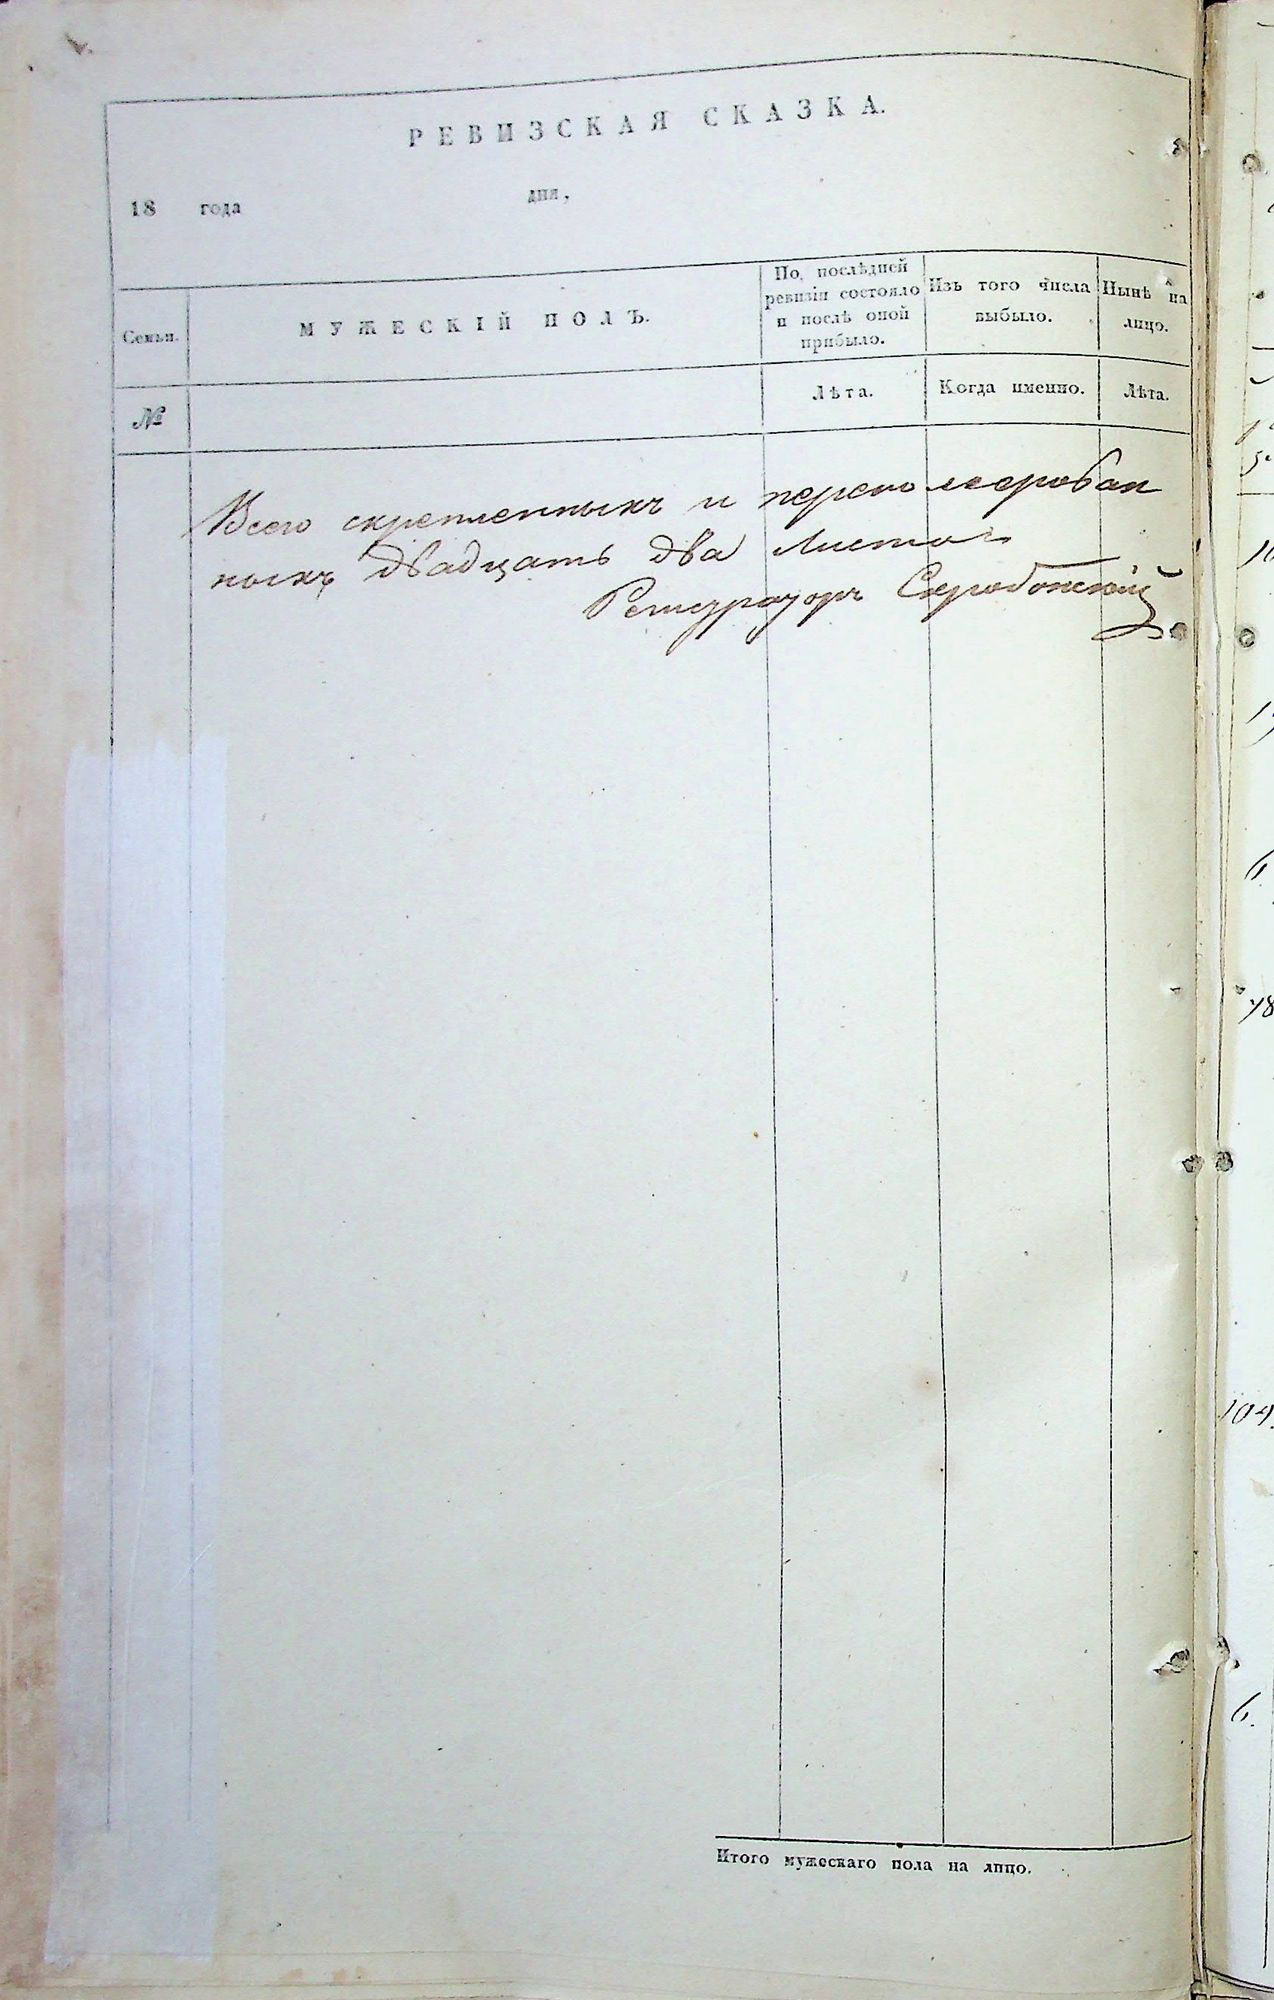 РЕВИЗСКАЯ СКАЗКА.
18 года дня,
Семьи.
МУЖЕСКІЙ ПОЛЪ.
По послѣдней
ревизіи состояло
и послѣ оной
прибыло.
Изъ того числа
выбыло.
Нынѣ на
лицо.
№
Лѣта.
Когда именно.
Лѣта.
Всего скрепленныхъ и перенумерован
ныхъ двадцать два листа
Регистраторъ
Итого мужескаго пола на лицо.
10
6
78
104.
6.